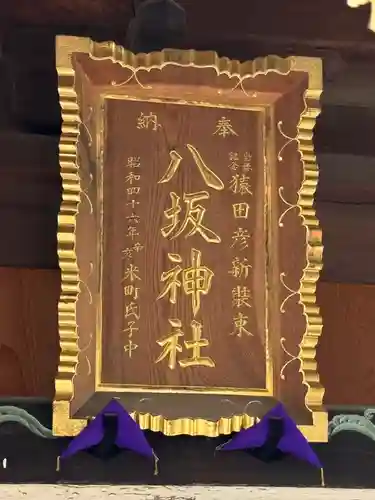 奉納
記念
猿田彦新装束
八坂神社
昭和四十六年辛亥
米町氏子中